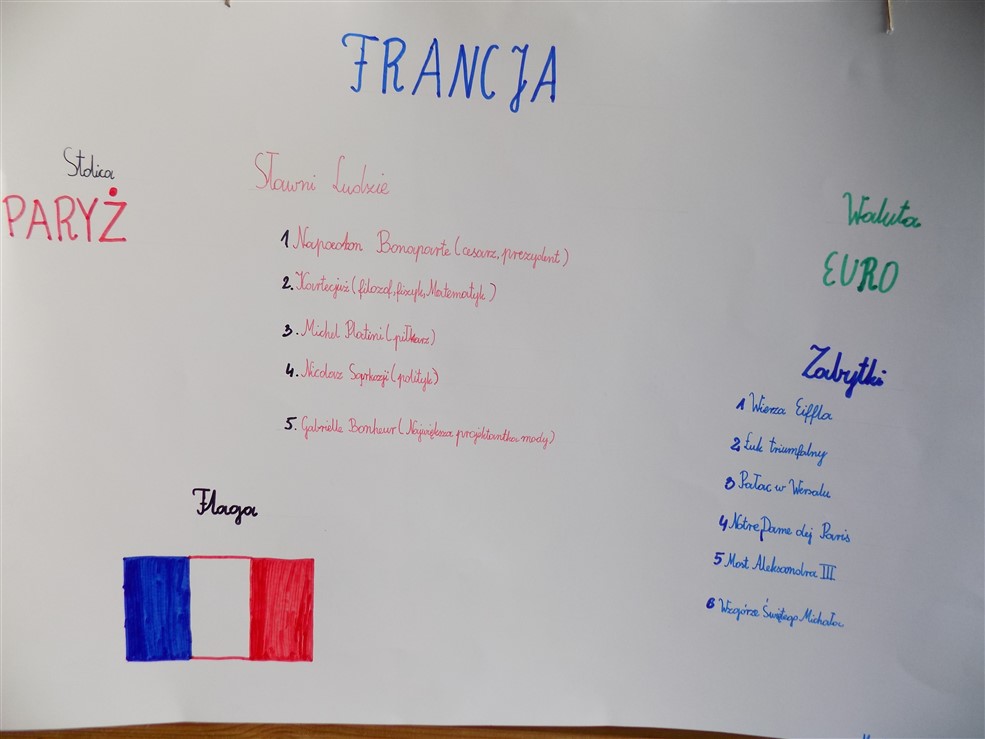 FRANCJA
Stolica
PARYŻ
Sławni Ludzie
1 Napoelon Bonaparte (cesarz, prezydent)
2. Kartezjusz (filozof, fizyk, Matematyk)
3. Michel Platini (piłkarz)
4. Nicolas Sarkozji (polityk)
5. Gabrielle Bonheur (Największa projektantka mody)
Flaga
Waluta
EURO
Zabytki
1 Wierza Eiffla
2 Łuk triumfalny
3 Pałac w Wersalu
4 Notre Dame dej Paris
5 Most Aleksandra III
6 Wzgórze Świętego Michała